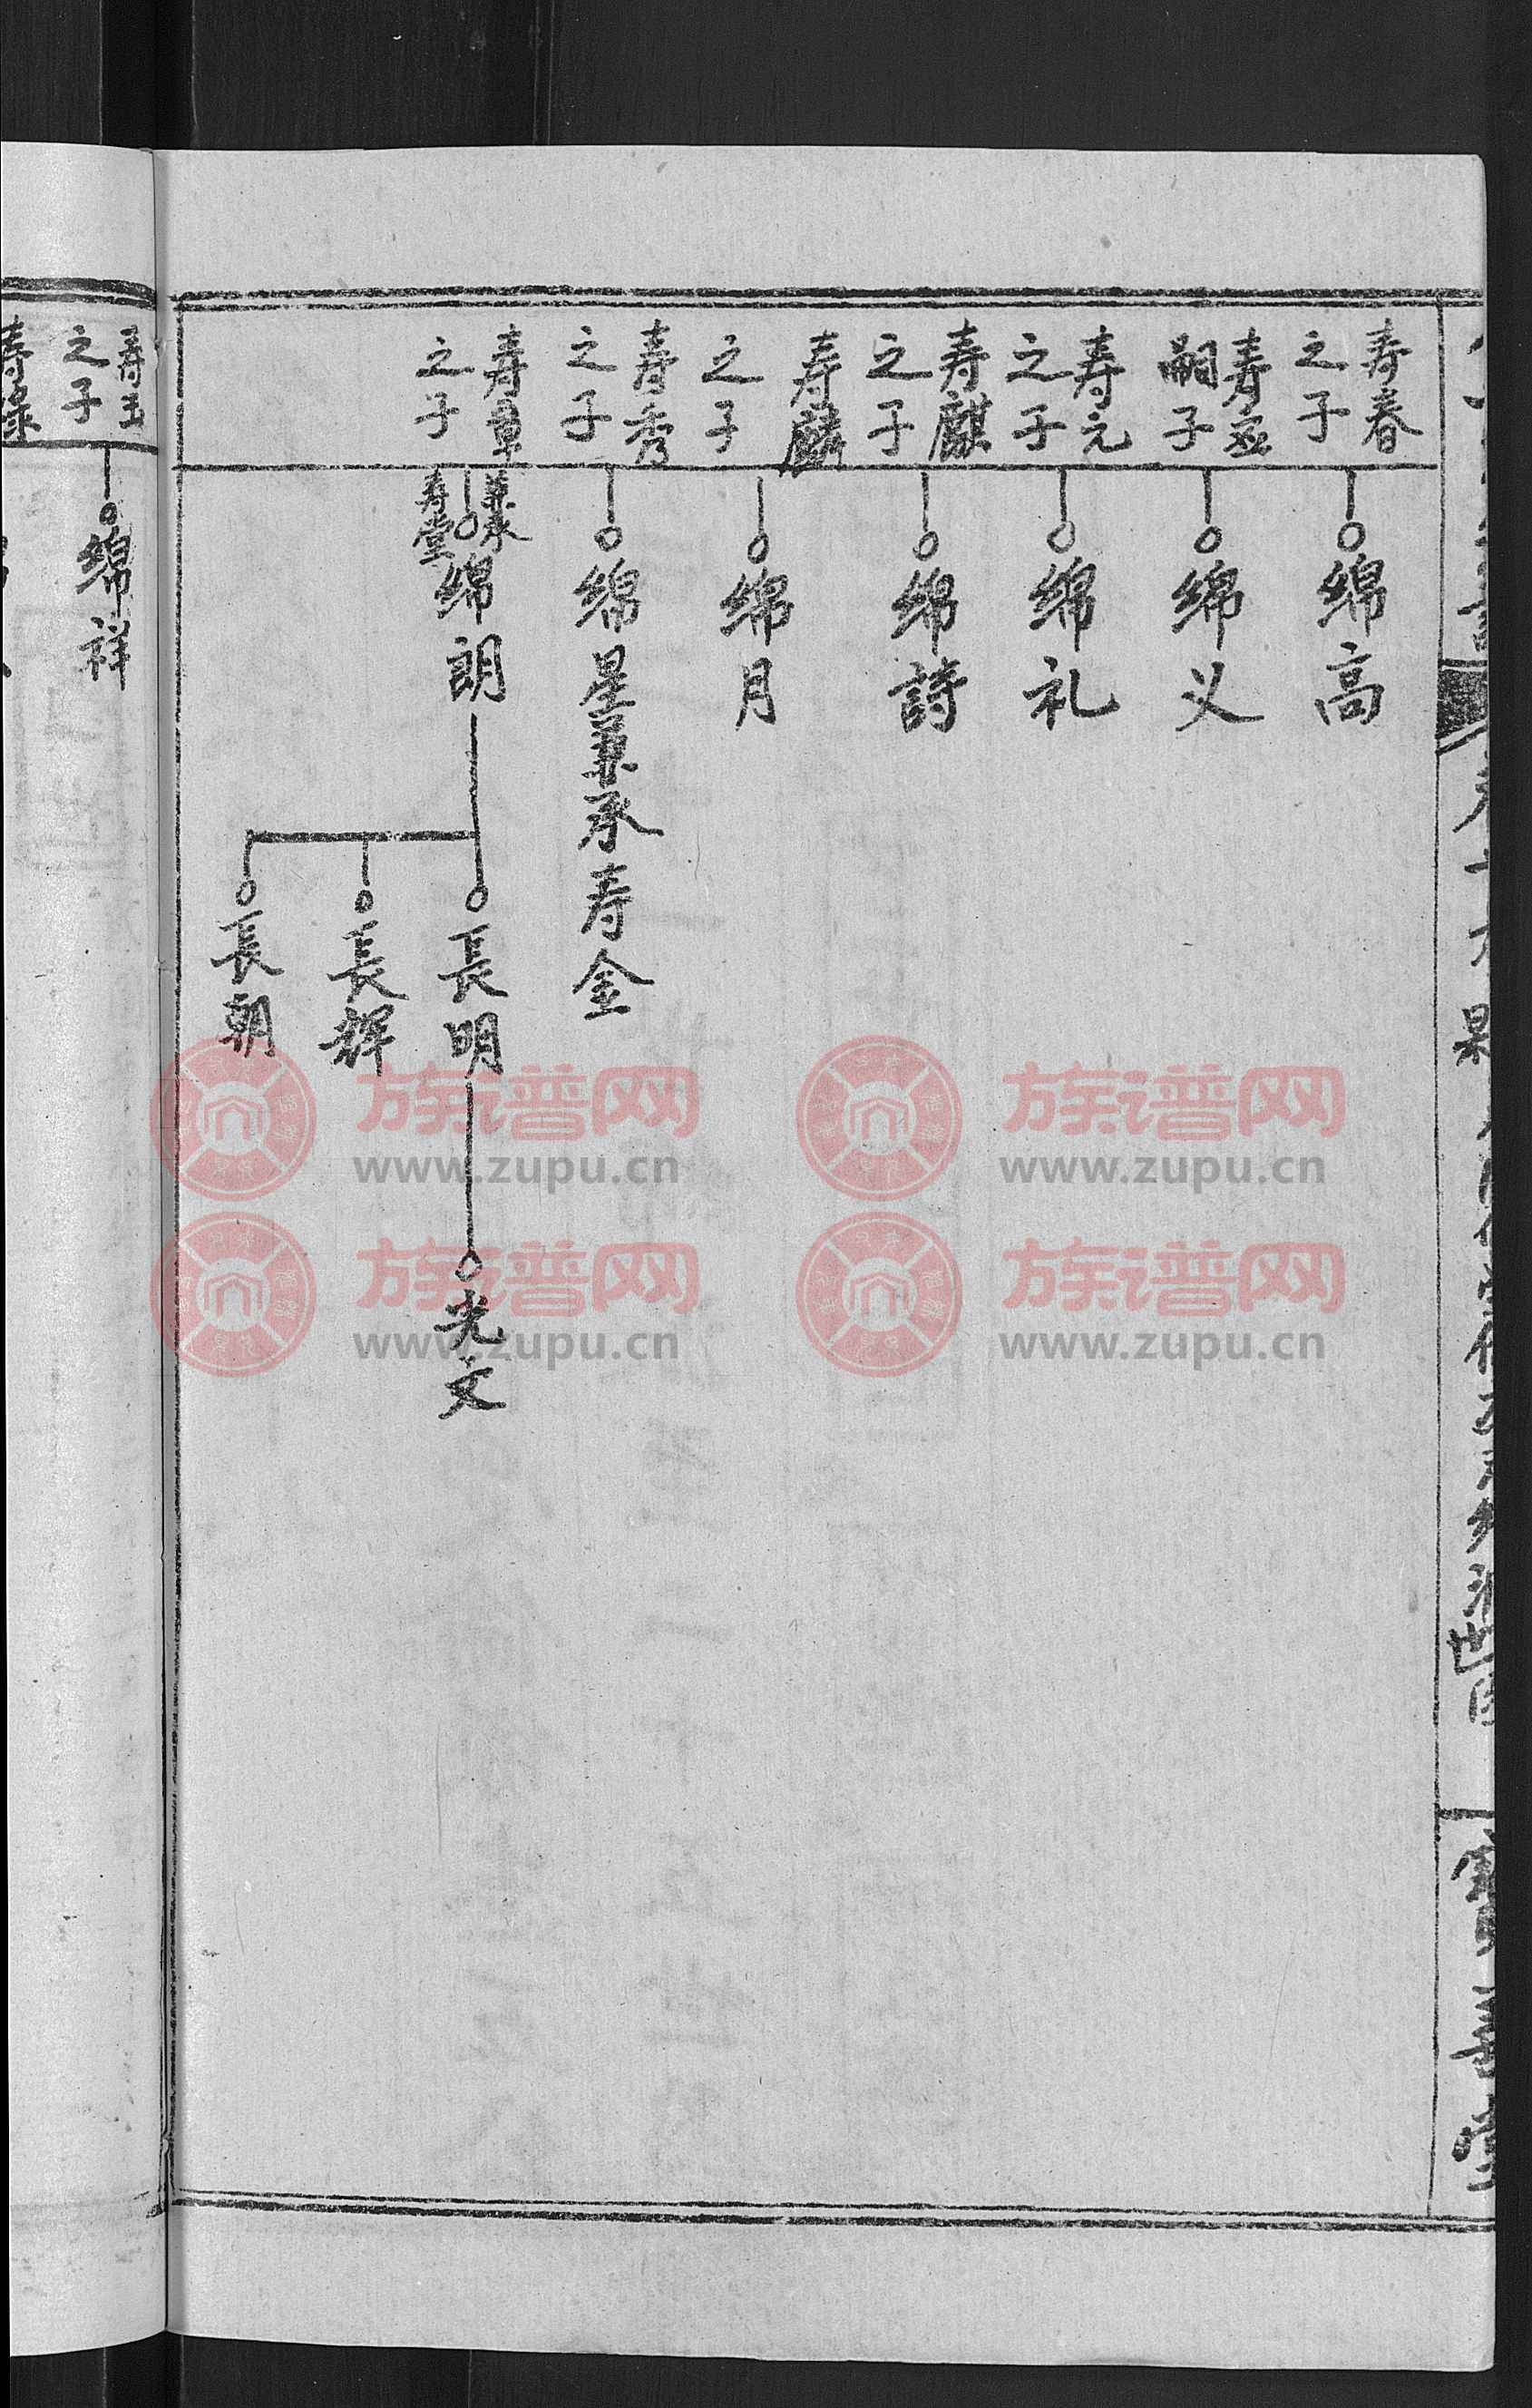 寿春
之子
綿高
寿益
嗣子
綿义
寿元
之子
綿礼
寿麒
之子
綿詩
寿麟
之子
綿月
寿秀
之子
綿星兼承寿金
寿章
之子
兼承
寿堂
綿朗
長明
光文
長辉
長朝
寿玉
之子
綿祥
寿禄
族谱网
www.zupu.cn
族谱网
www.zupu.cn
族谱网
www.zupu.cn
族谱网
www.zupu.cn